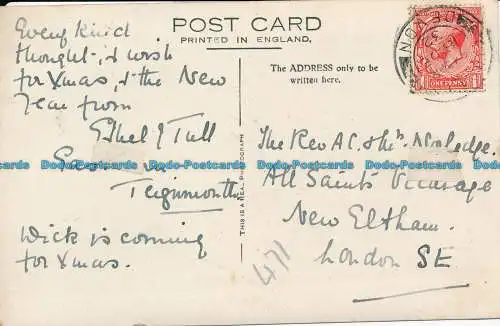 POST CARD
PRINTED IN ENGLAND.
The ADDRESS only to be
written here.
Every kind
thought & wish
for Xmas, & the New
Year from
Ethel J Tull
Teignmouth
Wick is coming
for Xmas.
THIS IS A REAL PHOTOGRAPH
The Rev A C
All Saints Vicarage
New Eltham.
London SE
471
DEVON
ONE PENNY
Bobs-Postcards Bobs-Postcards Bobs-Postcards Bobs-Postcards